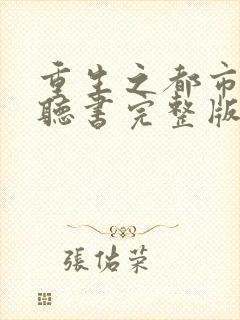 重生之都市
聽書完整版
張佑榮